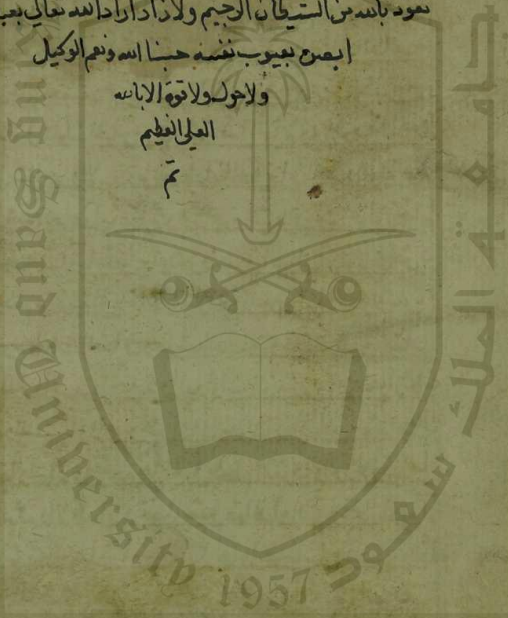 نعود بالله من الشيطان الرجيم ولاذ اذا اراد الله تعالى بعبد
ابصره بعيوب نفسه حسبنا الله ونعم الوكيل
ولاحول ولاقوة الابالله
العلي العظيم
تم
جامعة الملك سعود
King Saud University 1957